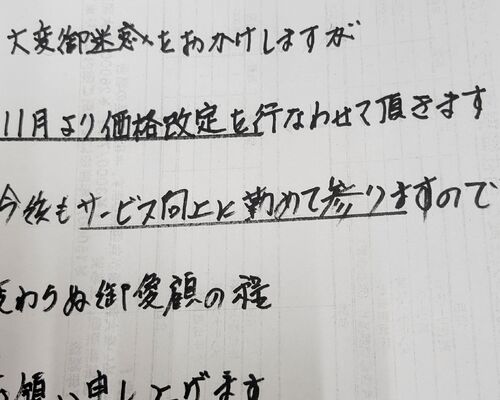 大変御迷惑をおかけしますが
11月より価格改定を行なわせて頂きます
今後もサービス向上に勤めて参りますので
変わらぬ御愛顧の程
お願い申し上げます